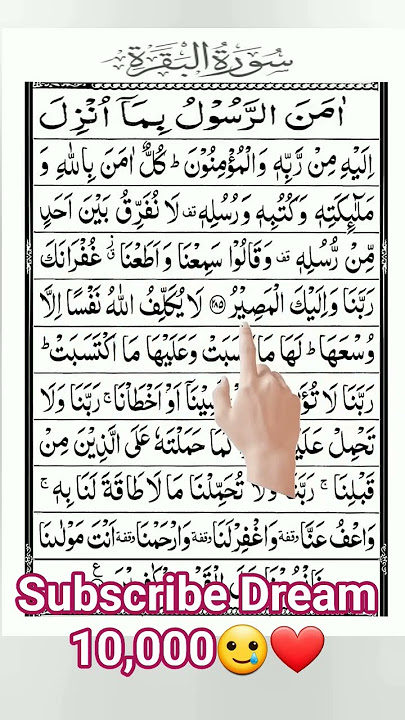 سُوْرَةُ الْبَقَرَةِ
اٰمَنَ الرَّسُوْلُ بِمَاۤ اُنْزِلَ
اِلَيْهِ مِنْ رَّبِّهٖ وَالْمُؤْمِنُوْنَ ؕ كُلٌّ اٰمَنَ بِاللّٰهِ وَ
مَلٰٓئِكَتِهٖ وَكُتُبِهٖ وَرُسُلِهٖ قف لَا نُفَرِّقُ بَيْنَ اَحَدٍ
مِّنْ رُّسُلِهٖ قف وَقَالُوْا سَمِعْنَا وَاَطَعْنَا ق غُفْرَانَكَ
رَبَّنَا وَاِلَيْكَ الْمَصِيْرُ ۝۲۸۵ لَا يُكَلِّفُ اللّٰهُ نَفْسًا اِلَّا
وُسْعَهَا ؕ لَهَا مَا وَعَلَيْهَا مَا اكْتَسَبَتْ ؕ
رَبَّنَا لَا اَوْ اَخْطَاْنَا ۚ رَبَّنَا وَلَا
تَحْمِلْ حَمَلْتَهٗ عَلَى الَّذِيْنَ مِنْ
قَبْلِنَا ۚ رَبَّنَا وَلَا تُحَمِّلْنَا مَا لَا طَاقَةَ لَنَا بِهٖ ۚ
وَاعْفُ عَنَّا وقفة وَاغْفِرْلَنَا وقفة وَارْحَمْنَا وقفة اَنْتَ مَوْلٰىنَا
Subscribe Dream
10,000🥲❤️